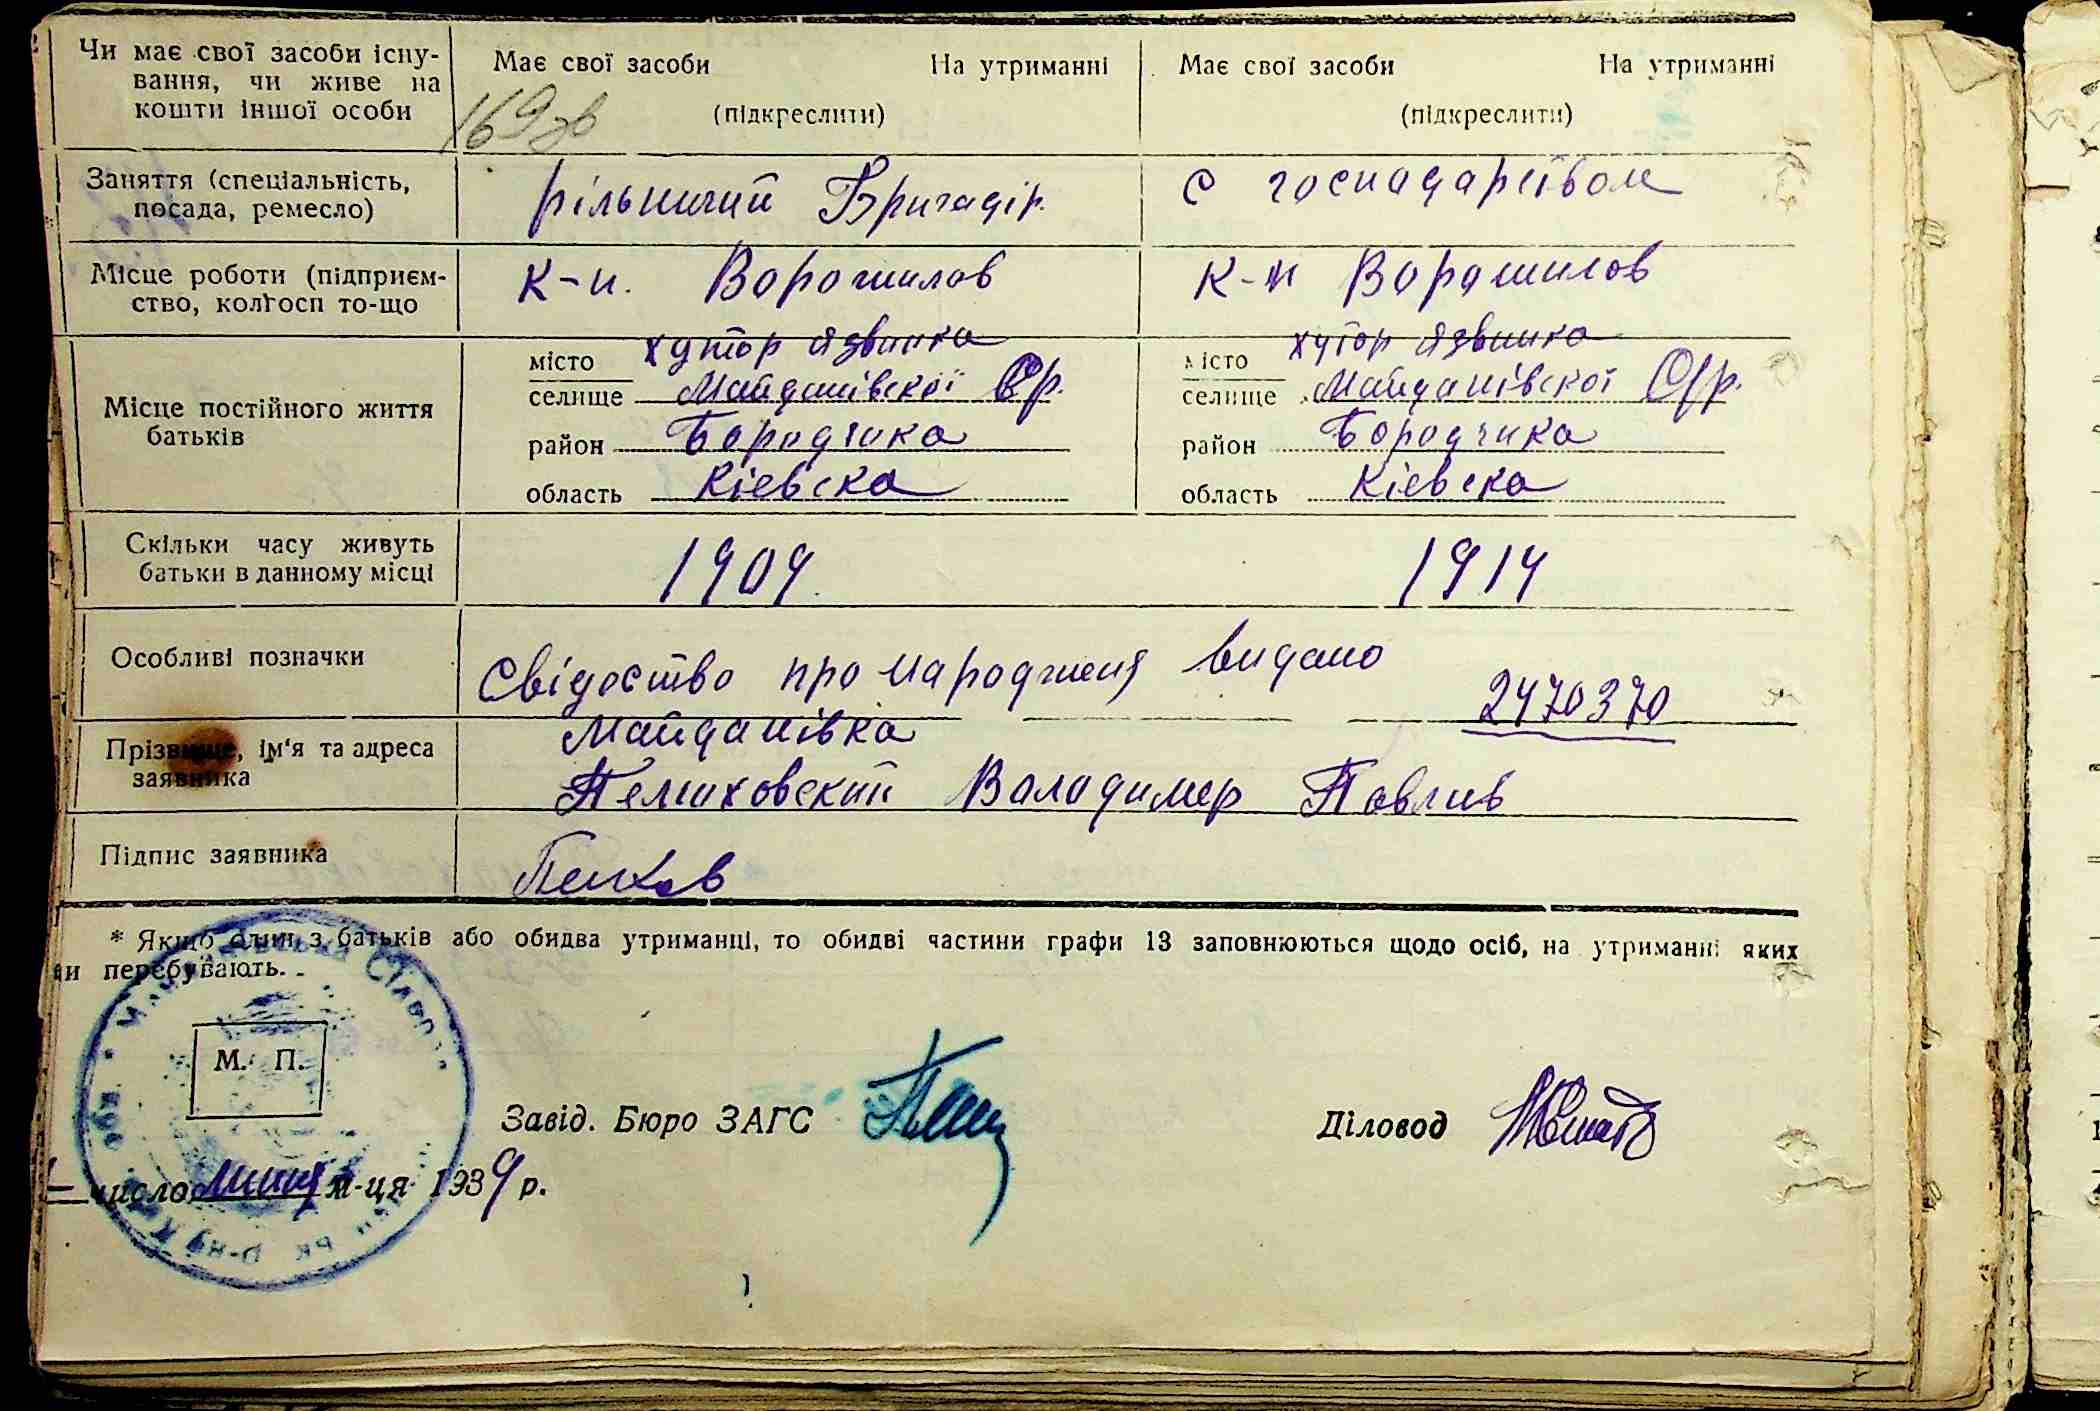 Чи має свої засоби існу-
вання, чи живе на
кошти іншої особи
Має свої засоби На утриманні
(підкреслити)
Має свої засоби На утриманні
(підкреслити)
169 зв
Заняття (спеціальність,
посада, ремесло)
рільничий Бригадір.
с господарством
Місце роботи (підприєм-
ство, колгосп то-що
к-п. Ворошилов
к-п Ворошилов
Місце постійного життя
батьків
хутор Язвинка
місто
селище Майданівскої С/р.
район Бородянка
область Кіевска
хутор Язвинка
місто
селище Майданівскої С/р.
район Бородянка
область Кіевска
Скільки часу живуть
батьки в данному місці
1909.
1914
Особливі позначки
Свідоство про народженя видано
2470370
Прізвище, ім'я та адреса
заявника
Майданівка
Володимер Павлив
Підпис заявника
* Якщо один з батьків або обидва утриманці, то обидві частини графи 13 заповнюються щодо осіб, на утриманні яких
ни перебувають.
М. П.
Завід. Бюро ЗАГС
Діловод
число м-ця 1939 р.